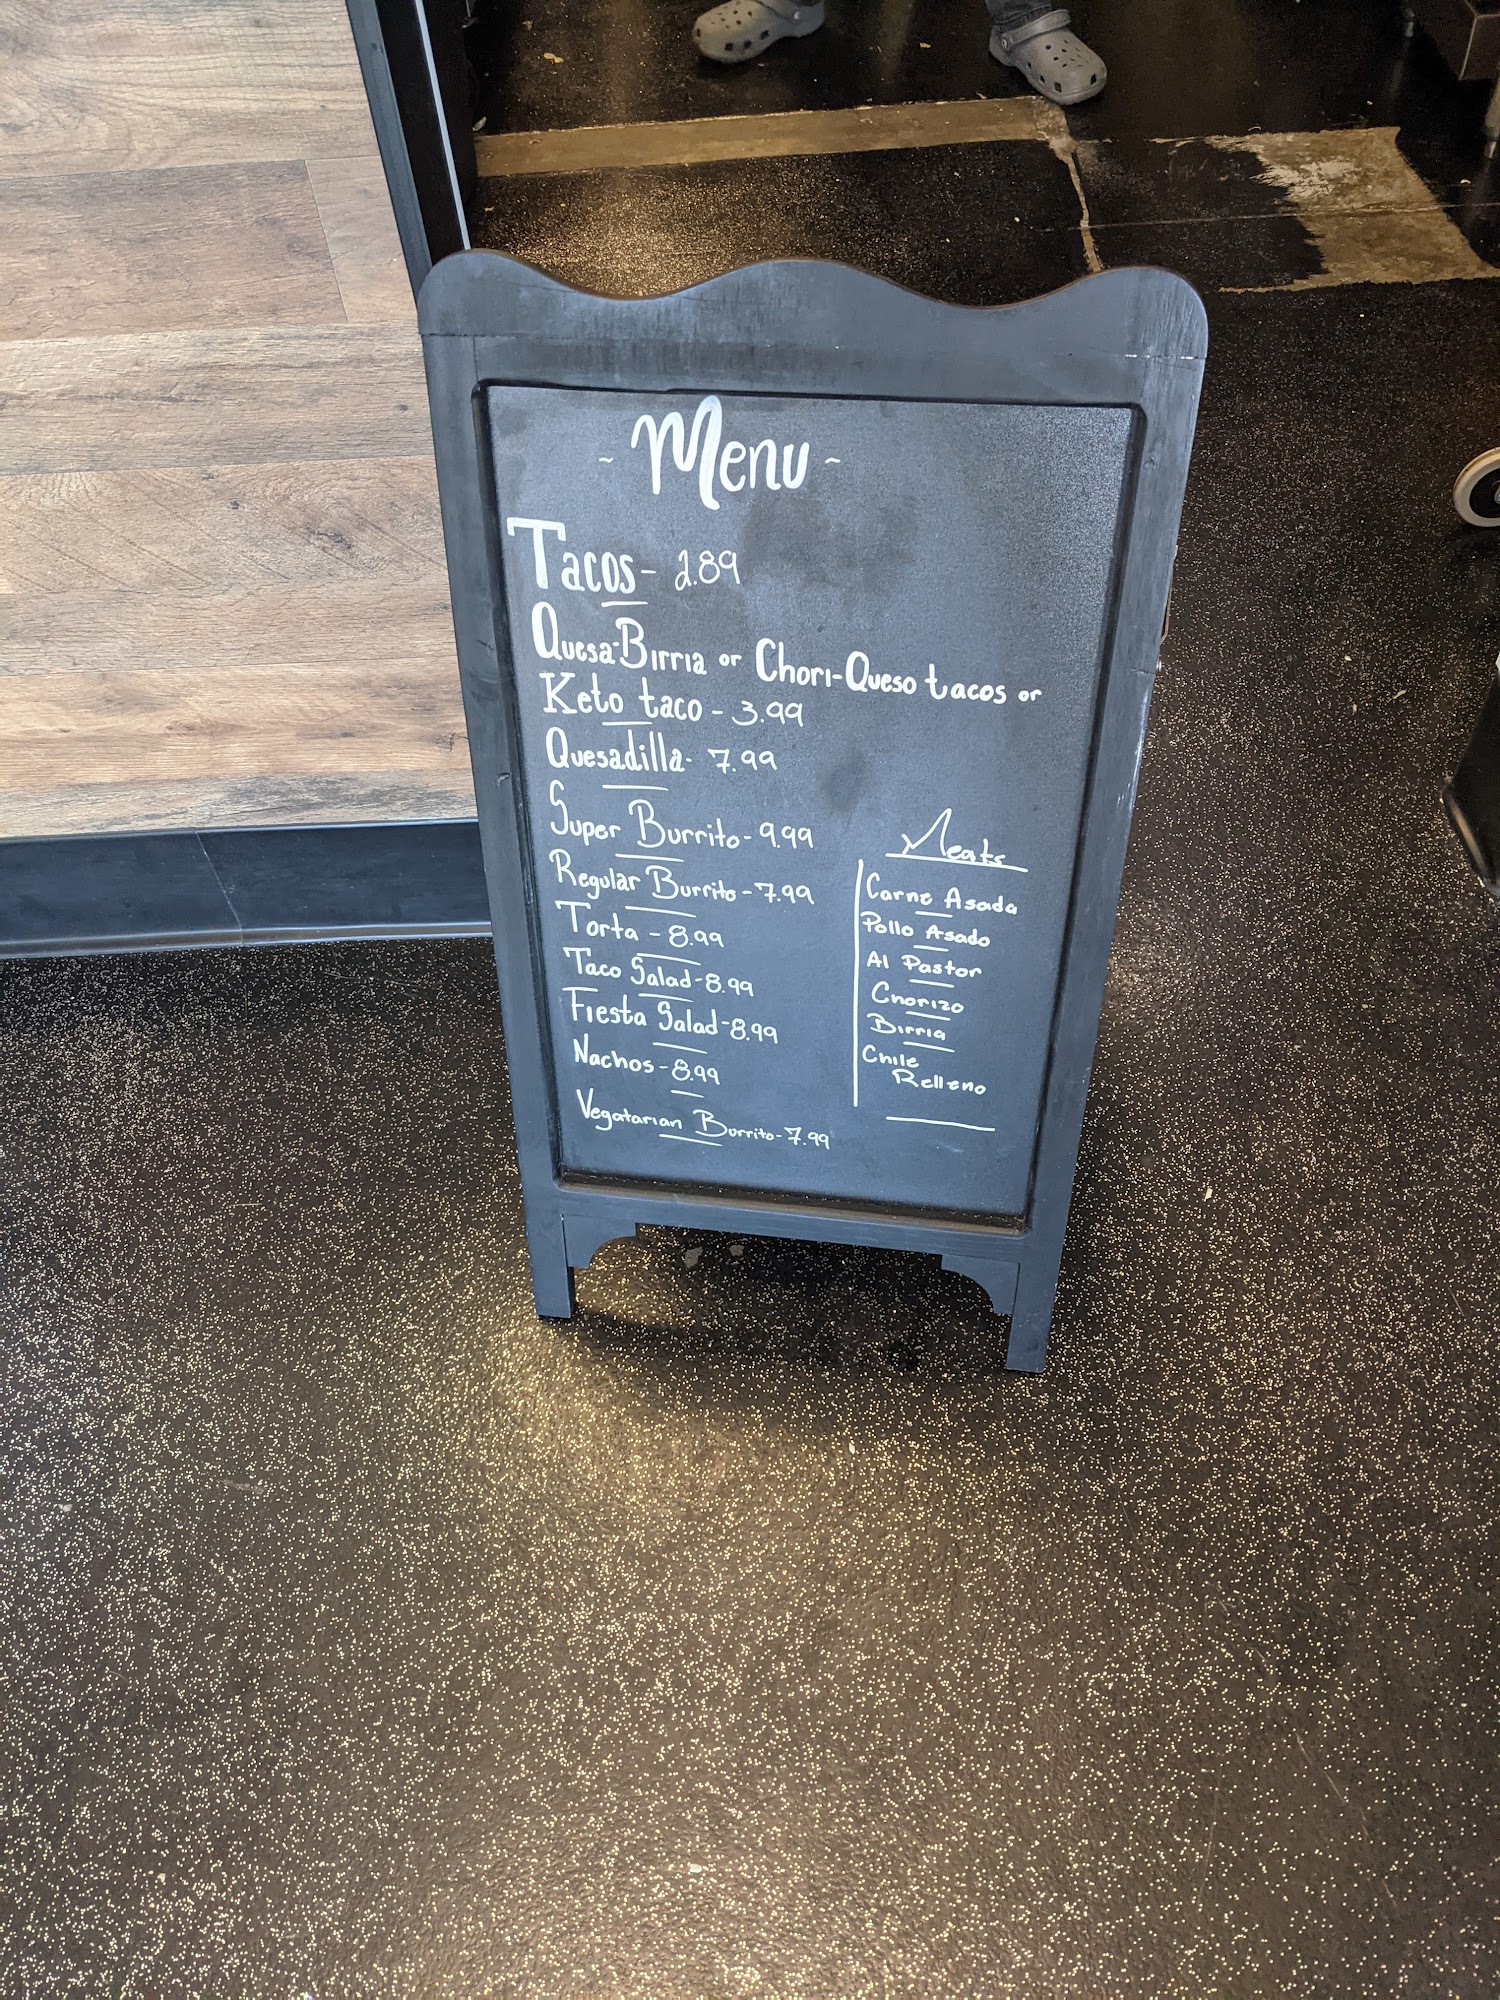 ~ Menu ~
Tacos- 2.89
Quesa-Birria or Chori-Queso tacos or
Keto taco - 3.99
Quesadilla- 7.99
Super Burrito- 9.99
Regular Burrito - 7.99
Torta - 8.99
Taco Salad - 8.99
Fiesta Salad - 8.99
Nachos - 8.99
Vegatarian Burrito- 7.99
Meats
Carne Asada
Pollo Asado
Al Pastor
Chorizo
Birria
Chile
Relleno